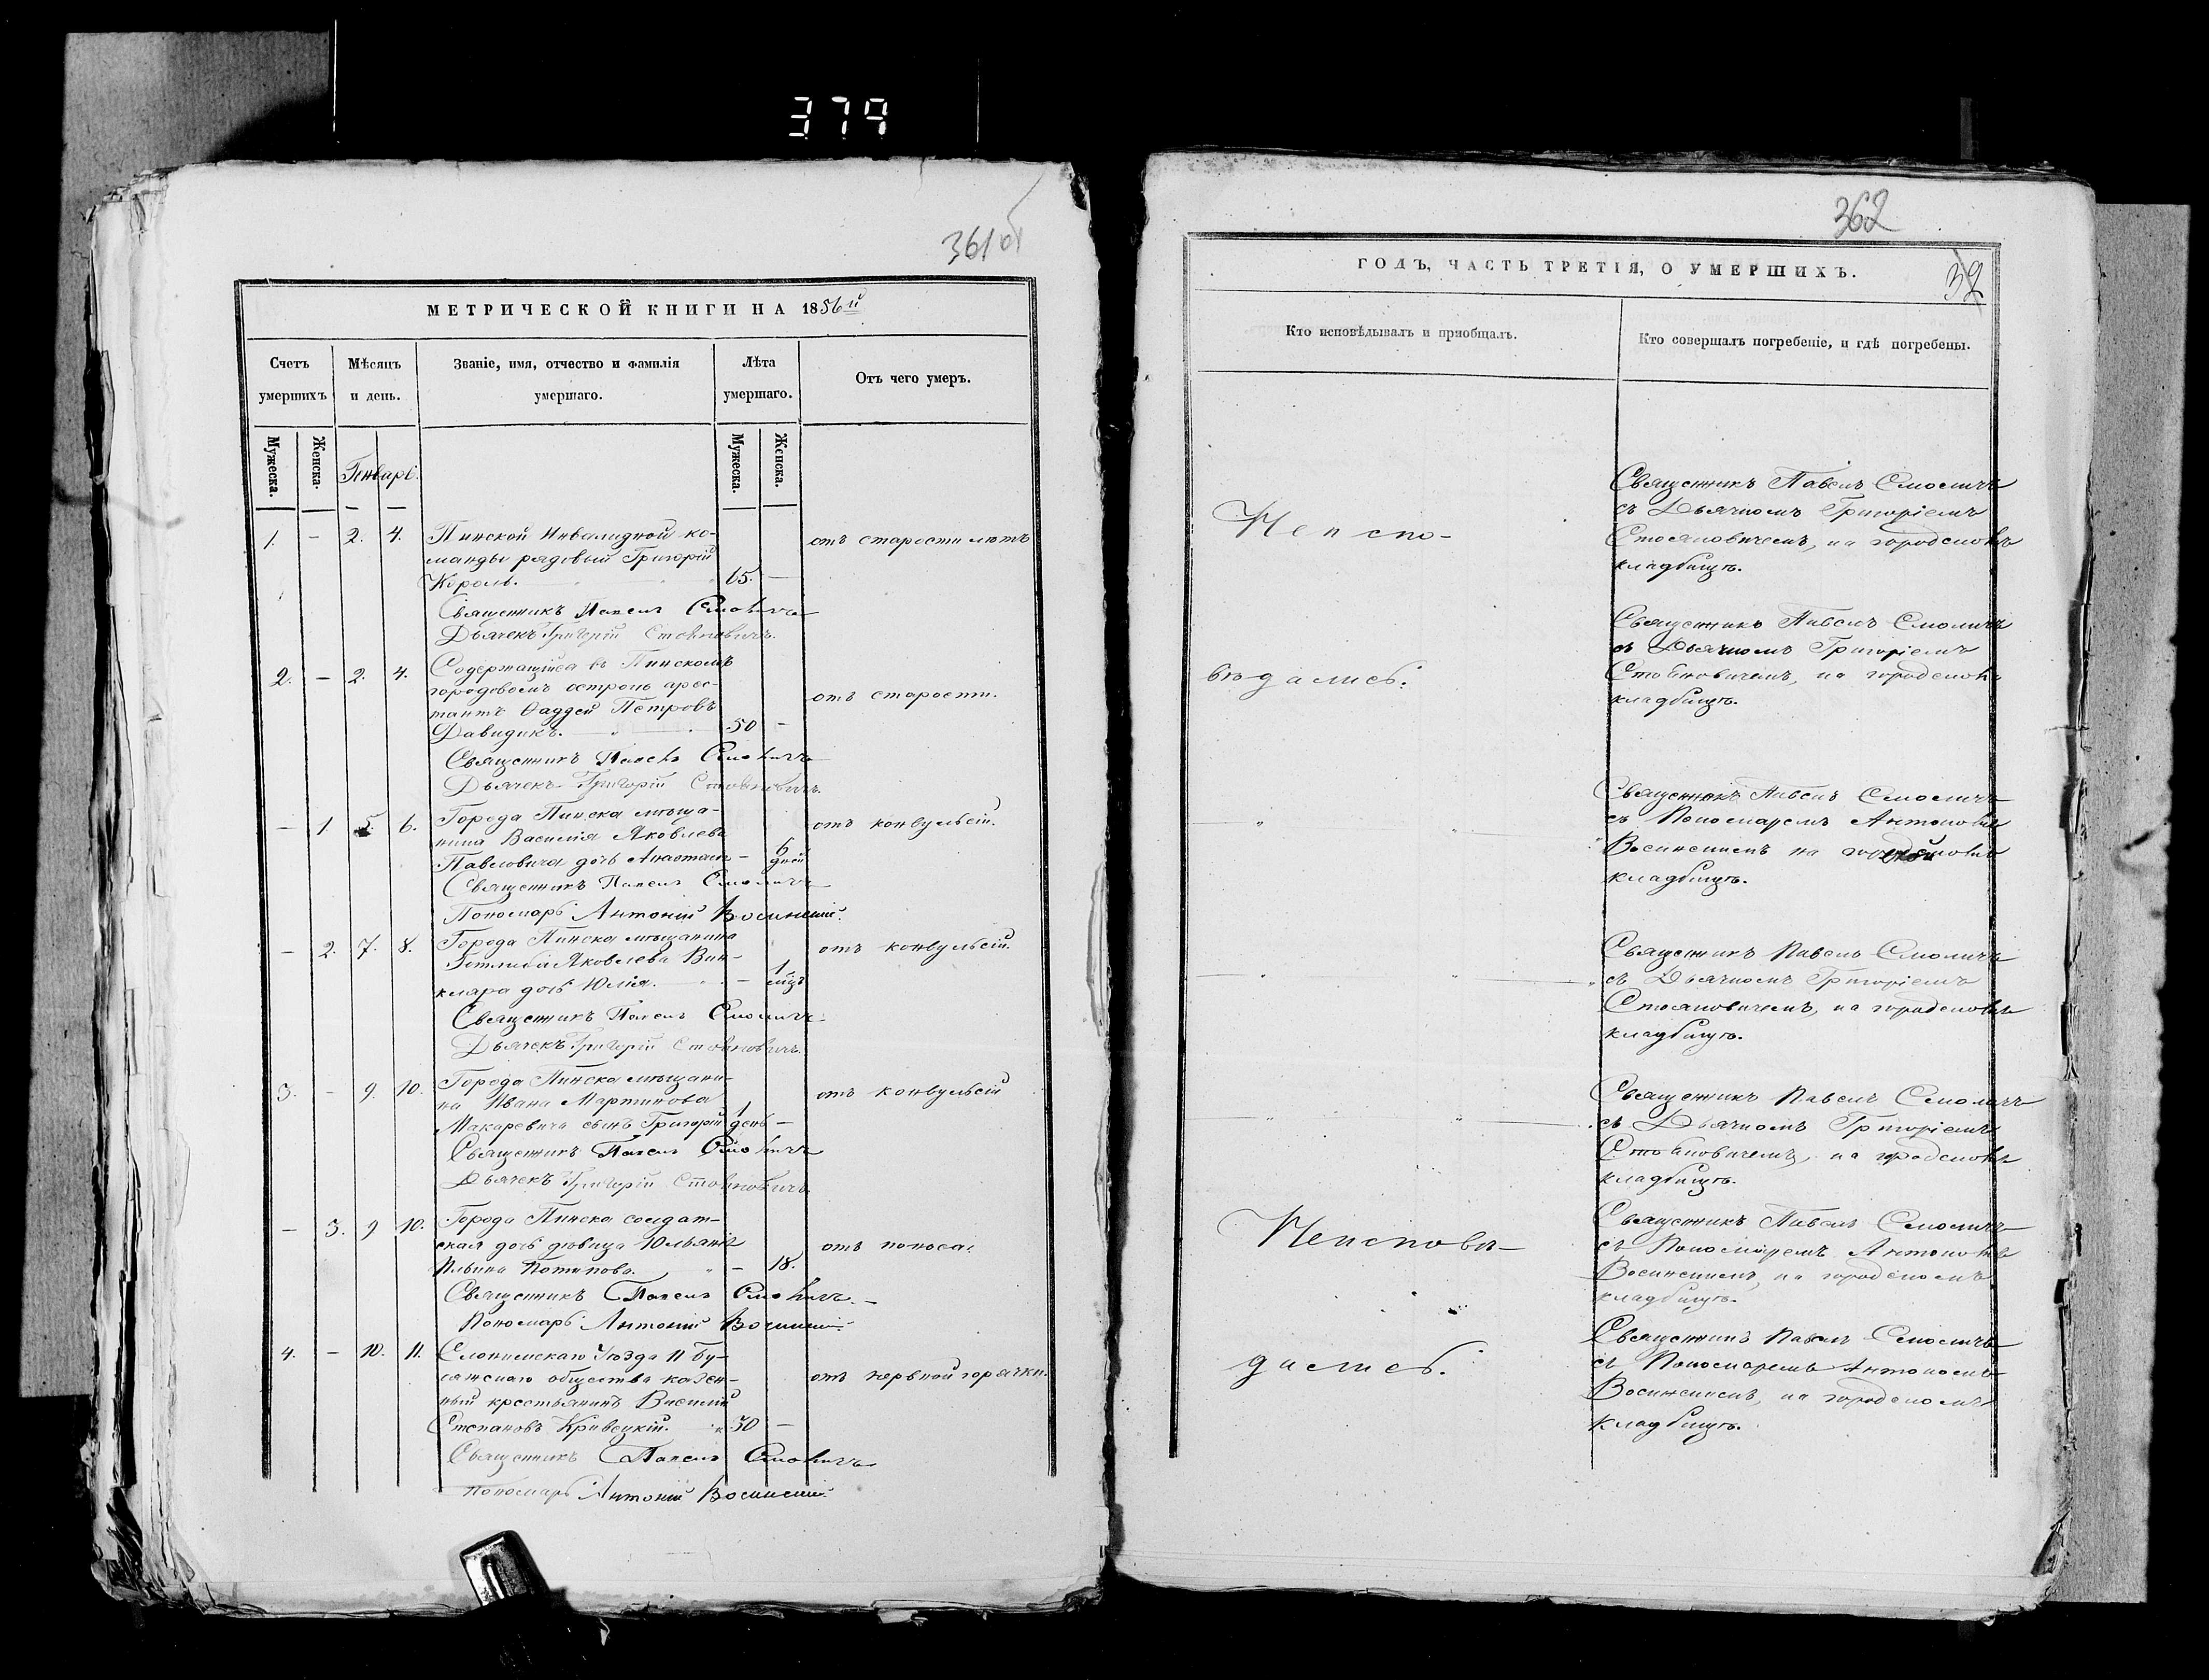 379
361 об
МЕТРИЧЕСКОЙ КНИГИ НА 1856й
Счетъ умершихъ
Мѣсяцъ и день.
Званіе, имя, отчество и фамилія умершаго.
Лѣта умершаго.
Отъ чего умеръ.
Мужеска.
Женска.
Генварь.
Мужеска.
Женска.
1. – 2. 4. Пинской Инвалидной ко-
манды рядовый Григорій
Король. 65. –
отъ старости лѣтъ
Священникъ Павелъ Смоличъ
Дьячекъ Григорій Стояновичъ.
2. – 2. 4. Содержащійся въ Пинскомъ
городовомъ острогѣ арес-
тантъ Ѳаддей Петровъ
Давидикъ. 50 –
отъ старости.
Священникъ Павелъ Смоличъ
Дьячекъ Григорій Стояновичъ.
– 1 5. 6. Города Пинска мѣща-
нина Василія Яковлева
Павловича дочь Анастасія – 6 дней
отъ конвульсій.
Священникъ Павелъ Смоличъ
Пономарь Антоній
– 2. 7. 8. Города Пинска мѣщанина
Яковлева Вин-
клера дочь Юлія. – 1 мѣсц
отъ конвульсій.
Священникъ Павелъ Смоличъ
Дьячекъ Григорій Стояновичъ.
3. – 9. 10. Города Пинска мѣщани-
на Ивана Мартинова
Макаревича сынъ Григорій 1 день –
отъ конвульсій
Священникъ Павелъ Смоличъ
Дьячекъ Григорій Стояновичъ.
– 3. 9 10. Города Пинска солдат-
ская дочь дѣвица Юльянія
Ильина Потапова. – 18.
отъ поноса.
Священникъ Павелъ Смоличъ. –
Пономарь Антоній
4. – 10. 11. Слонимскаго Уѣзда
общества казен-
ный крестьянинъ Василій
Степановъ Кривецкій. 30 –
отъ нервной горячки.
Священникъ Павелъ Смоличъ
Пономарь Антоній
362
39
ГОДЪ, ЧАСТЬ ТРЕТІЯ, О УМЕРШИХЪ.
Кто исповѣдывалъ и пріобщалъ.
Кто совершалъ погребеніе, и гдѣ погребены.
Неиспо-
вѣдались.
Священникъ Павелъ Смоличъ
съ Дьячкомъ Григоріемъ
Стояновичемъ, на городсковъ
кладбищѣ.
Священникъ Павелъ Смоличъ
съ Дьячкомъ Григоріемъ
Стояновичемъ, на городсковъ
кладбищѣ.
Священникъ Павелъ Смоличъ
съ Пономаремъ Антоніемъ
на
кладбищѣ.
Священникъ Павелъ Смоличъ
съ Дьячкомъ Григоріемъ
Стояновичемъ, на городсковъ
кладбищѣ.
Священникъ Павелъ Смоличъ
съ Дьячкомъ Григоріемъ
Стояновичемъ, на городсковъ
кладбищѣ.
Неисповѣ-
дались.
Священникъ Павелъ Смоличъ
съ Пономаремъ Антоніемъ
на городскомъ
кладбищѣ.
Священникъ Павелъ Смоличъ
съ Пономаремъ Антоніемъ
на городскомъ
кладбищѣ.